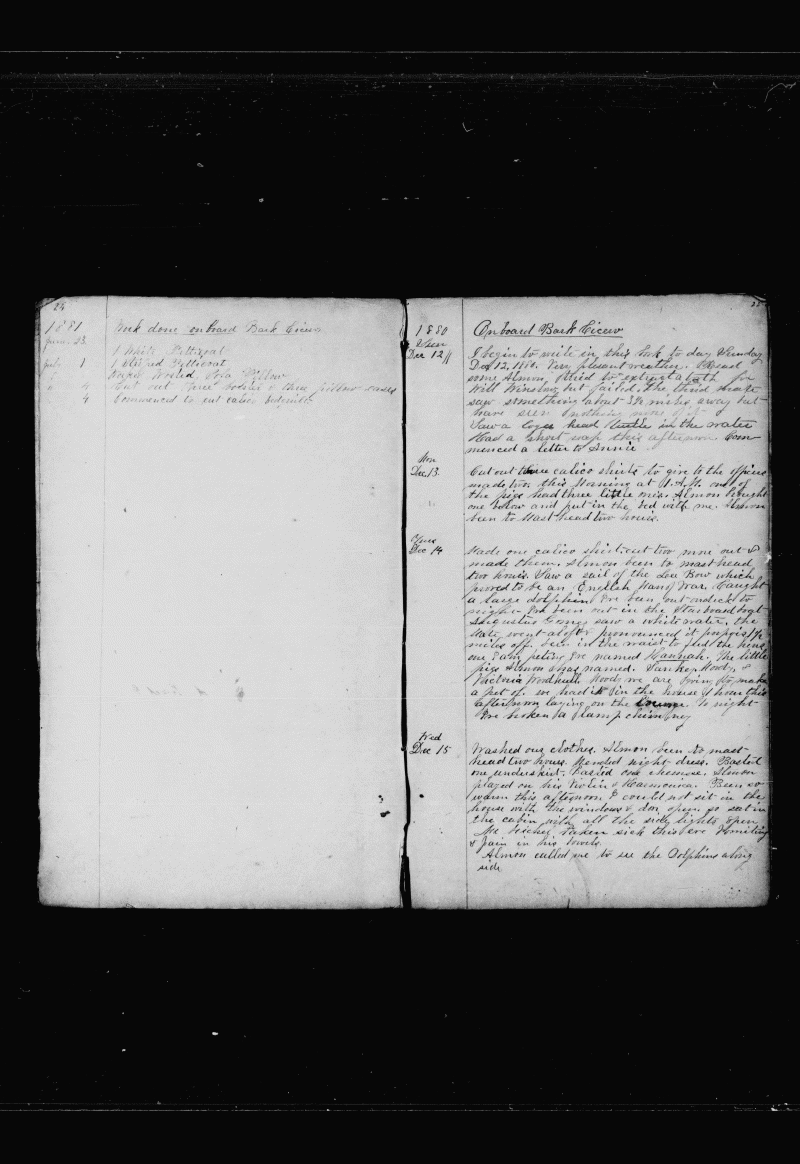 24
1881 Work done onboard Bark Cicero
June 23
1 White Petticoat
July 1 1 Striped Petticoat
Worsted Sofa Pillow
" 4 Cut out three bodies & three pillow cases
4 Commenced to cut calico
25
1880 Onboard Bark Cicero
Sun
Dec 12 I begin to write in this book to day Sunday
Dec 12, 1880. Very pleasant weather. Read
some, Almon tried to extract a tooth for
Will Winslow but failed. The third mate
saw something about 3½ miles away but
have seen nothing more of it
Saw a loger head turtle in the water
Had a short nap this afternoon. Com-
menced a letter to Annie
Mon
Dec 13. Cut out three calico shirts to give to the officers
made two, this Morning at 4 A.M. one of
the pigs had three little ones. Almon brought
one below and put in the bed with me. Almon
been to Mast head two hours.
Tues
Dec 14 Made one calico shirt. cut two more out &
made them. Almon been to mast head
two hours. Saw a sail of the Lee Bow which
proved to be an English Man of War. Caught
a large dolphin. I've been out on deck to
night. I've been out in the Starboard boat
Augustus Gomes saw a white water, the
Mate went aloft & pronounced it porpois 1½
miles off. Been in the waist to feed the hens,
one I am peting I've named Hannah. The little
pigs Almon has named. Sankey, Moody, &
Victoria Woodhull. Moody we are trying to make
a pet of. we had it in the house 1 hour this
afternoon laying on the lounge. To night
I've broken a lamp chimney
Wed
Dec 15 Washed our clothes. Almon been to mast
head two hours. Mended night dress. Basted
one underskirt, basted one chemise. Almon
played on his Violin & Harmonica. Been so
warm this afternoon I could not sit in the
house with the windows & door open so sat in
the cabin with all the side lights open
Mr taken sick this eve Vomiting
& pain in his bowels.
Almon called me to see the Dolphins along
side